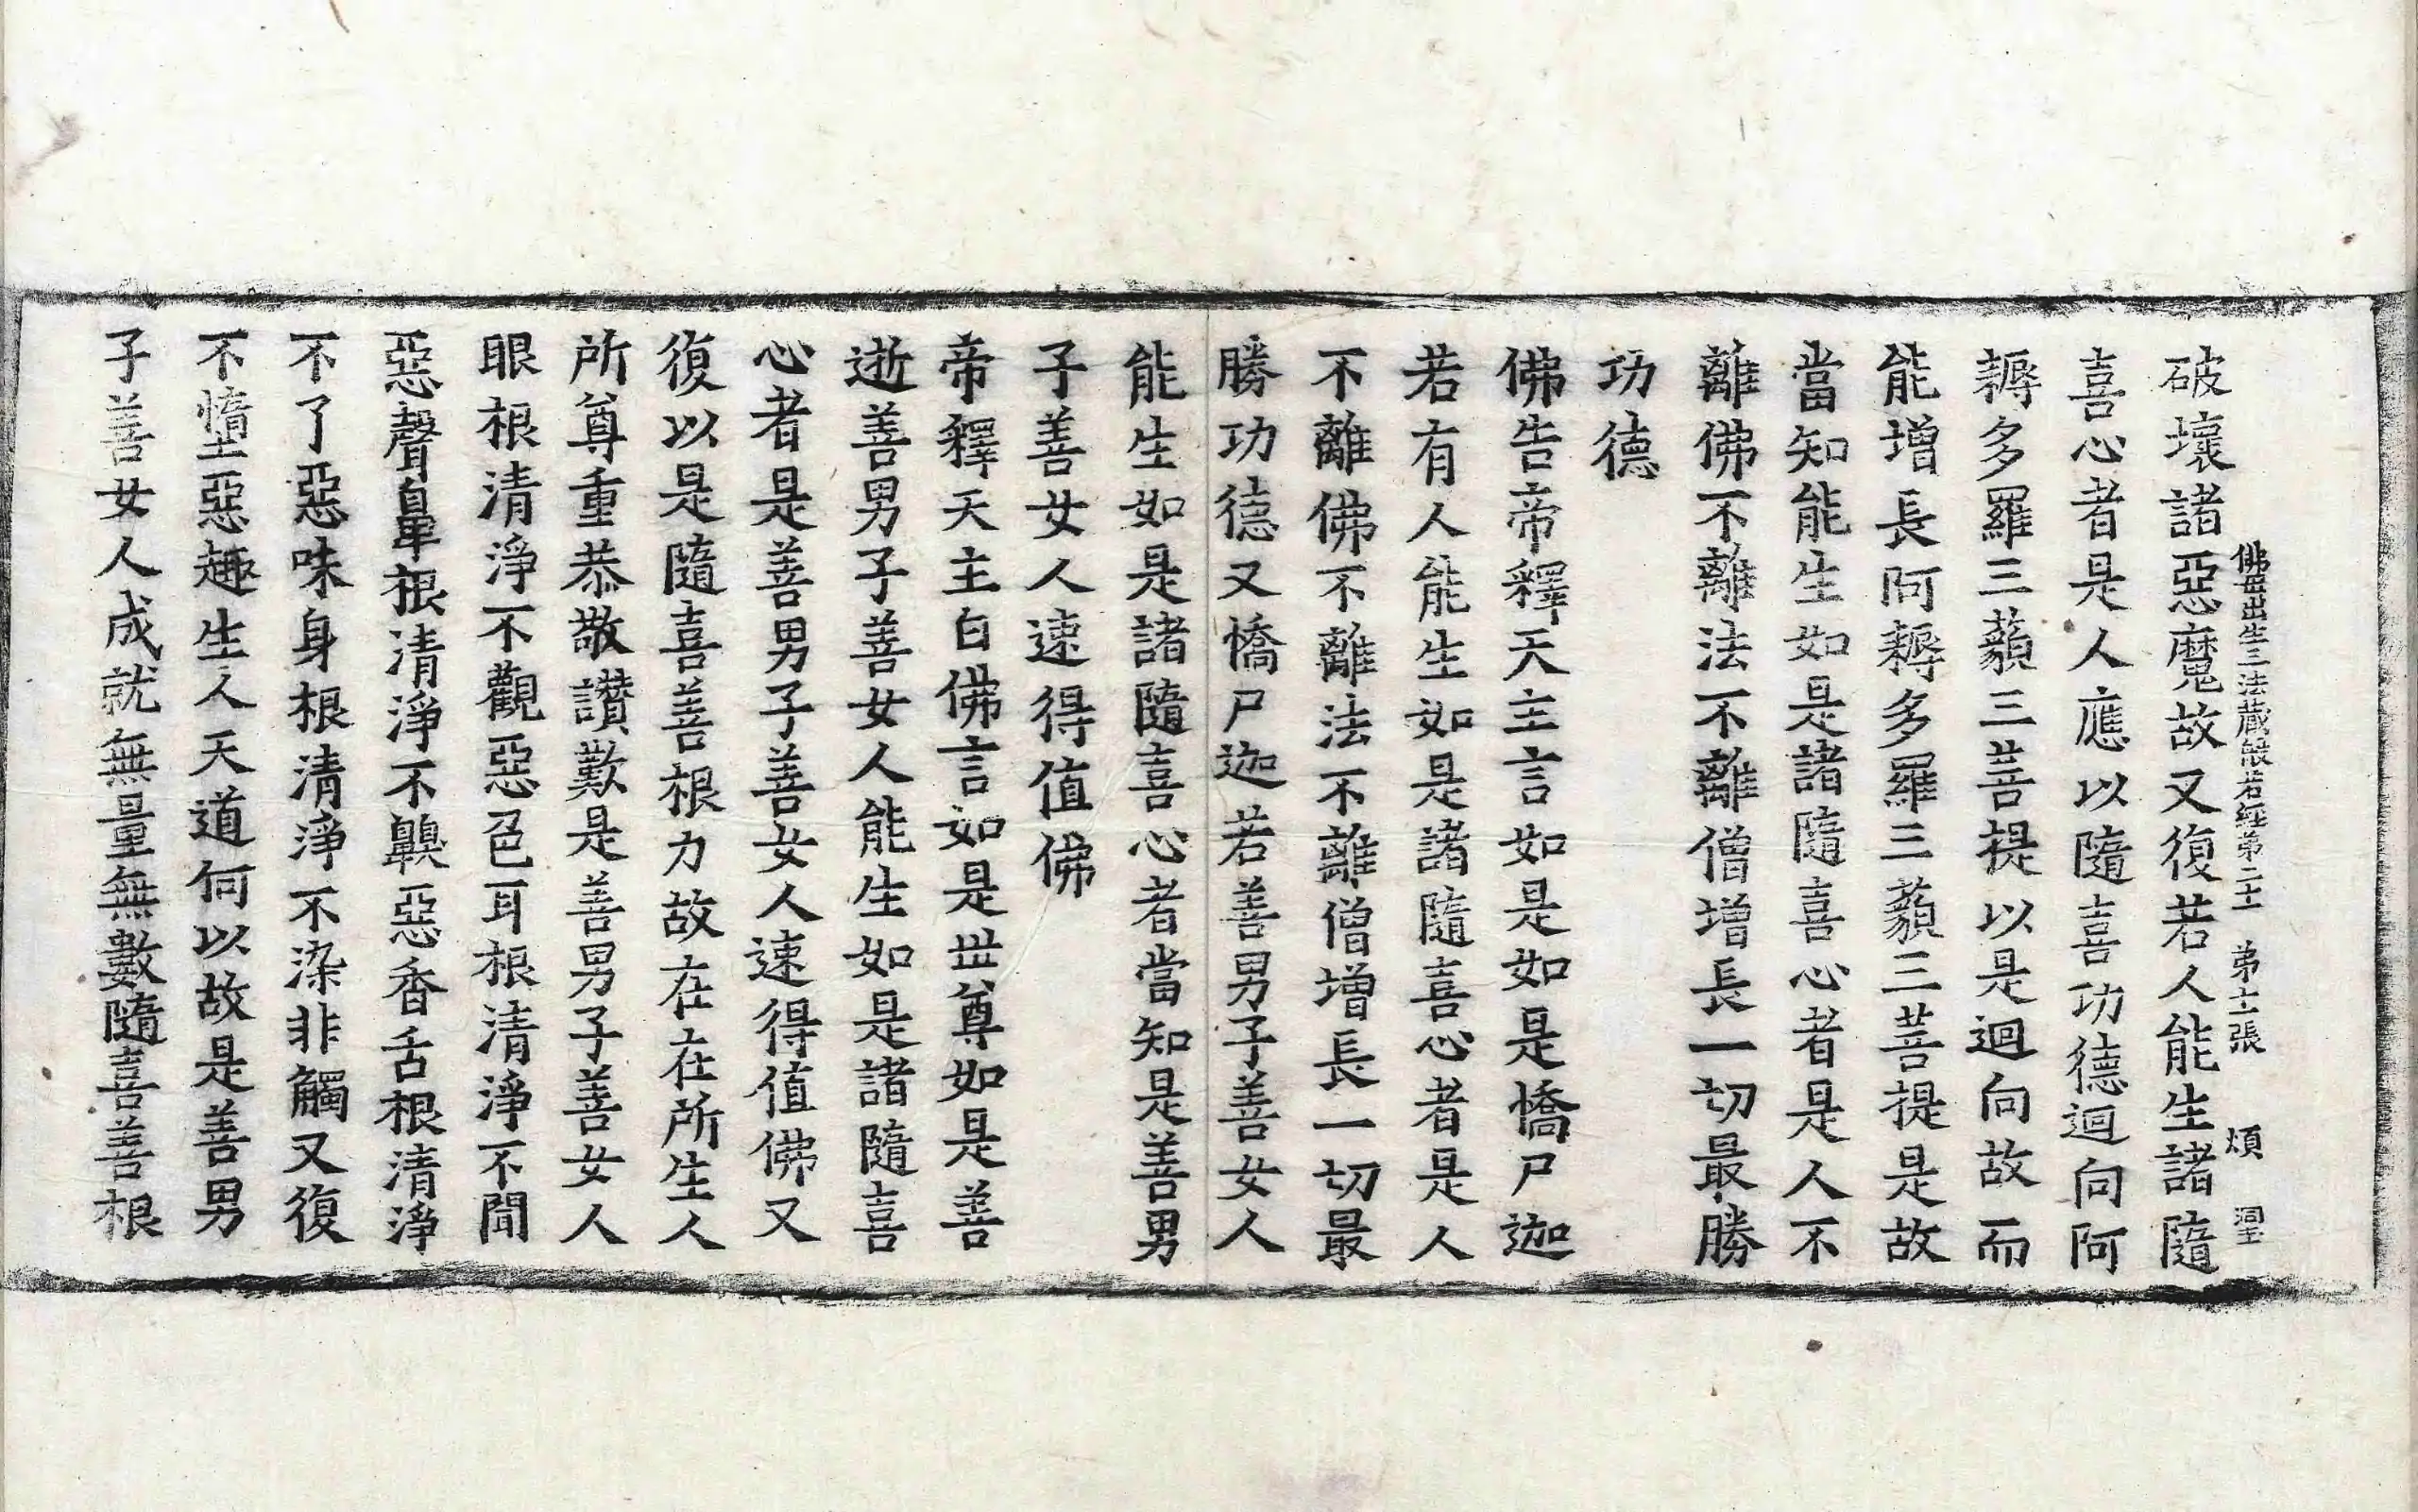 佛母出生三法藏般若經第二十 第十二張 煩 洞玉
破壞諸惡魔故又復若人能生諸隨
喜心者是人應以隨喜功德迴向阿
耨多羅三藐三菩提以是迴向故而
能增長阿耨多羅三藐三菩提是故
當知能生如是諸隨喜心者是人不
離佛不離法不離僧增長一切最勝
功德
佛告帝釋天主言如是如是憍尸迦
若有人能生如是諸隨喜心者是人
不離佛不離法不離僧增長一切最
勝功德又憍尸迦若善男子善女人
能生如是諸隨喜心者當知是善男
子善女人速得值佛
帝釋天主白佛言如是世尊如是善
逝善男子善女人能生如是諸隨喜
心者是善男子善女人速得值佛又
復以是隨喜善根力故在在所生人
所尊重恭敬讚歎是善男子善女人
眼根清淨不觀惡色耳根清淨不聞
惡聲鼻根清淨不齅惡香舌根清淨
不了惡味身根清淨不染非觸又復
不墮惡趣生人天道何以故是善男
子善女人成就無量無數隨喜善根